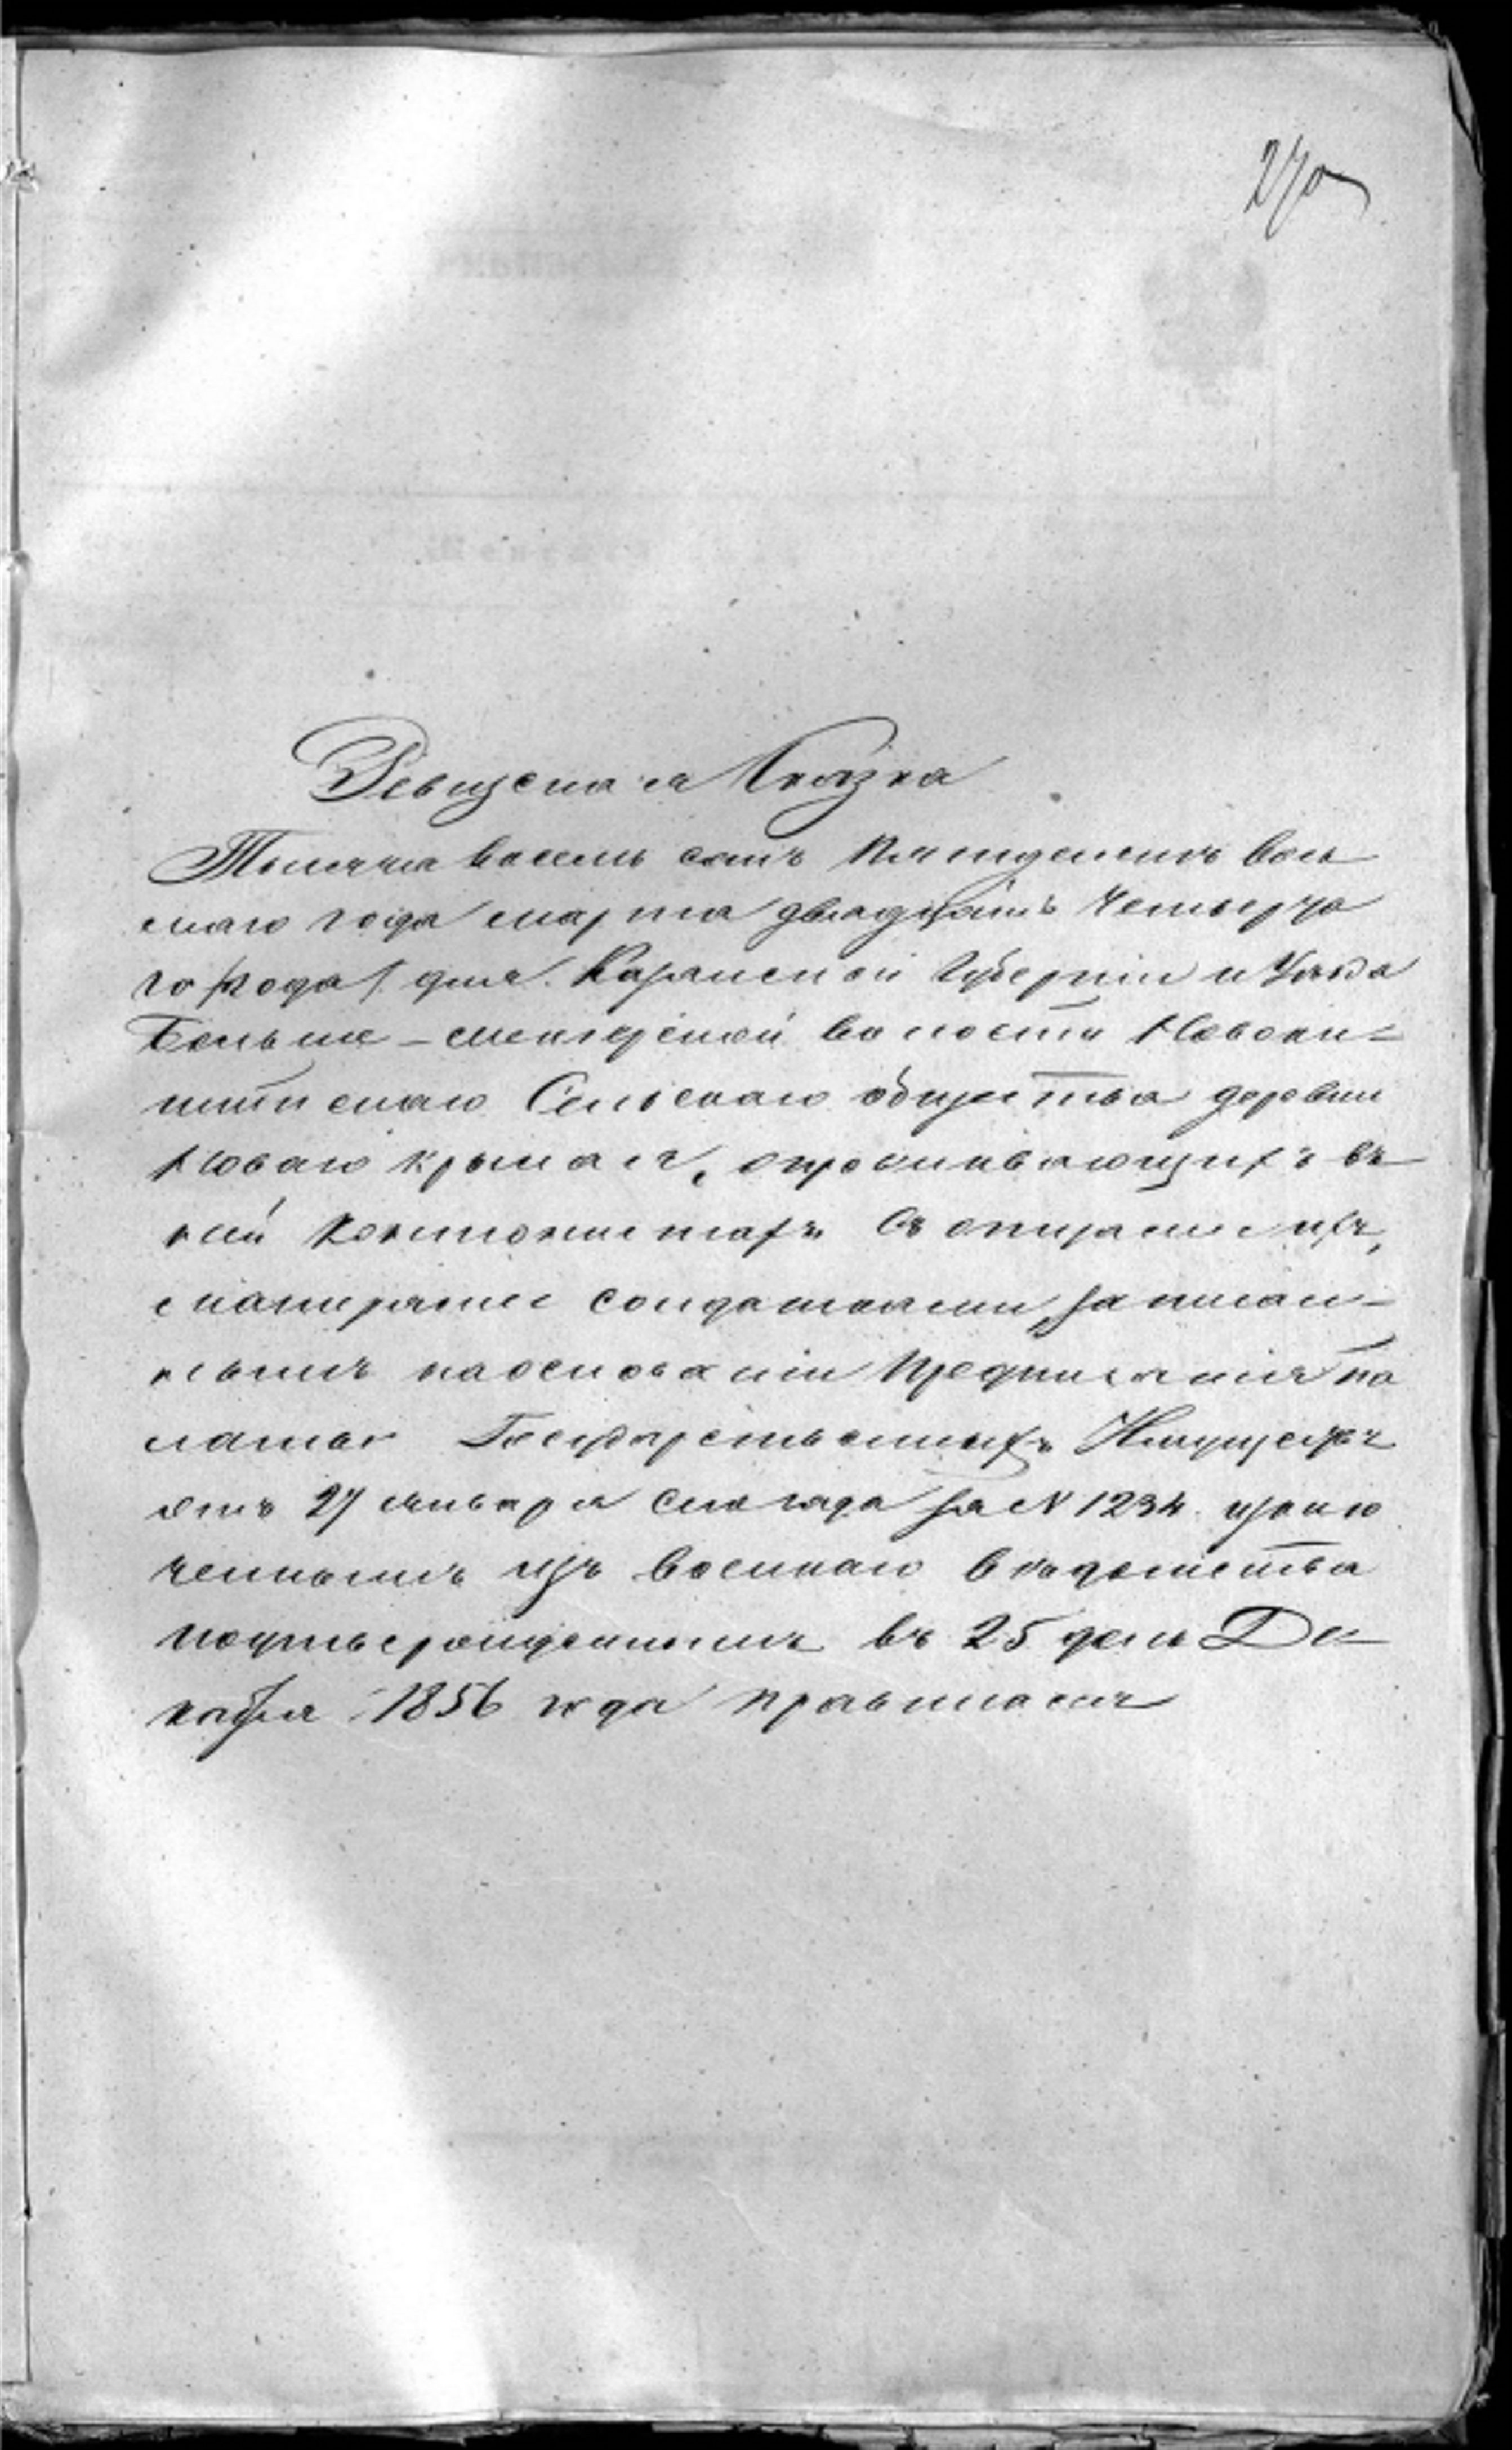 270
Ревизская Сказка
Тысяча восемь сотъ пятдесятъ вось
маго года марта двадцать четверта
го /года/ дня. Казанской Губерніи и Уѣзда
Больше-менгерской волости Новоки-
шитскаго Сельскаго общества деревни
Новаго крымая, о проживающихъ въ
ней кантонистахъ съ отцами ихъ,
и матерями солдатками, записан-
нымъ на основаніи предписанія па
латы Государственныхъ Имуществъ
отъ 27 января сего года за N 1234. исклю
ченнымъ изъ военнаго вѣдомства
подтвержденнымъ въ 25 день Де-
кабря 1856 года